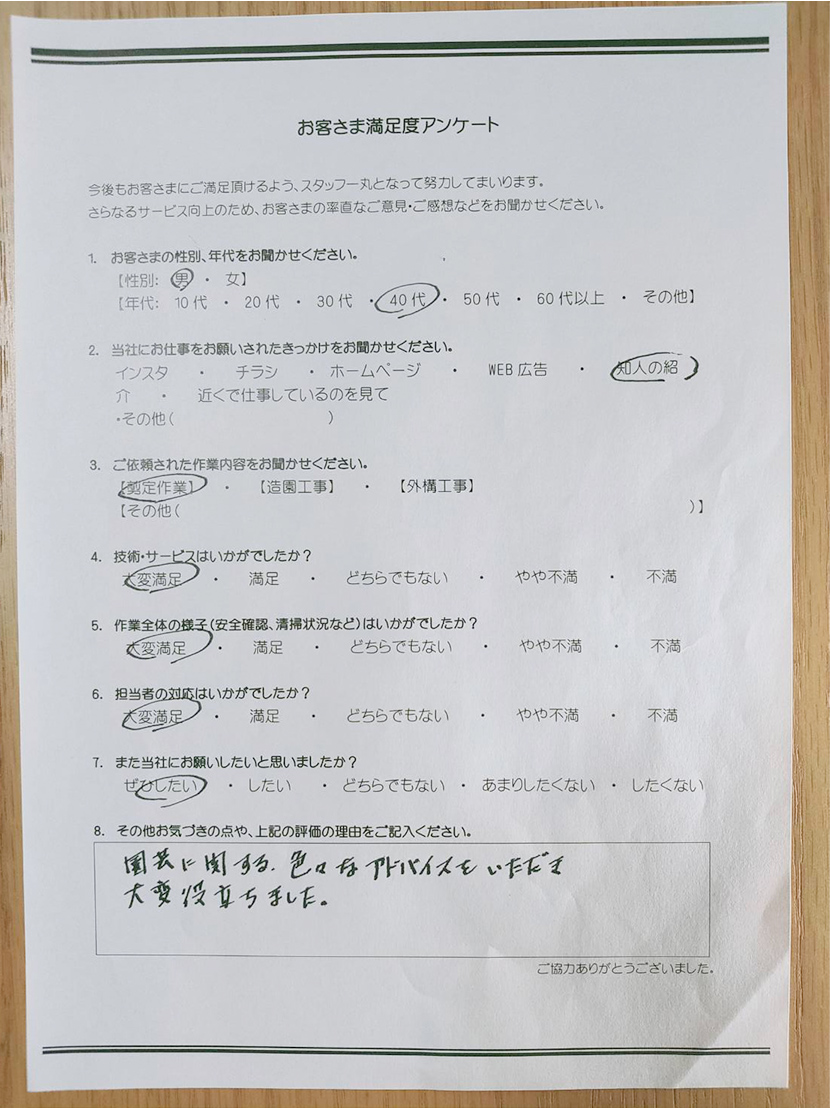 お客さま満足度アンケート
今後もお客さまにご満足頂けるよう、スタッフ一丸となって努力してまいります。
さらなるサービス向上のため、お客さまの率直なご意見・ご感想などをお聞かせください。
1. お客さまの性別、年代をお聞かせください。
【性別: 男 ・ 女】
【年代: 10代 ・ 20代 ・ 30代 ・ 40代 ・ 50代 ・ 60代以上 ・ その他】
2. 当社にお仕事をお願いされたきっかけをお聞かせください。
インスタ ・ チラシ ・ ホームページ ・ WEB広告 ・ 知人の紹
介 ・ 近くで仕事しているのを見て
・その他( )
3. ご依頼された作業内容をお聞かせください。
【剪定作業】 ・ 【造園工事】 ・ 【外構工事】
【その他( )】
4. 技術・サービスはいかがでしたか?
大変満足 ・ 満足 ・ どちらでもない ・ やや不満 ・ 不満
5. 作業全体の様子(安全確認、清掃状況など)はいかがでしたか?
大変満足 ・ 満足 ・ どちらでもない ・ やや不満 ・ 不満
6. 担当者の対応はいかがでしたか?
大変満足 ・ 満足 ・ どちらでもない ・ やや不満 ・ 不満
7. また当社にお願いしたいと思いましたか?
ぜひしたい ・ したい ・ どちらでもない ・ あまりしたくない ・ したくない
8. その他お気づきの点や、上記の評価の理由をご記入ください。
園芸に関する、色々なアドバイスをいただき
大変役立ちました。
ご協力ありがとうございました。